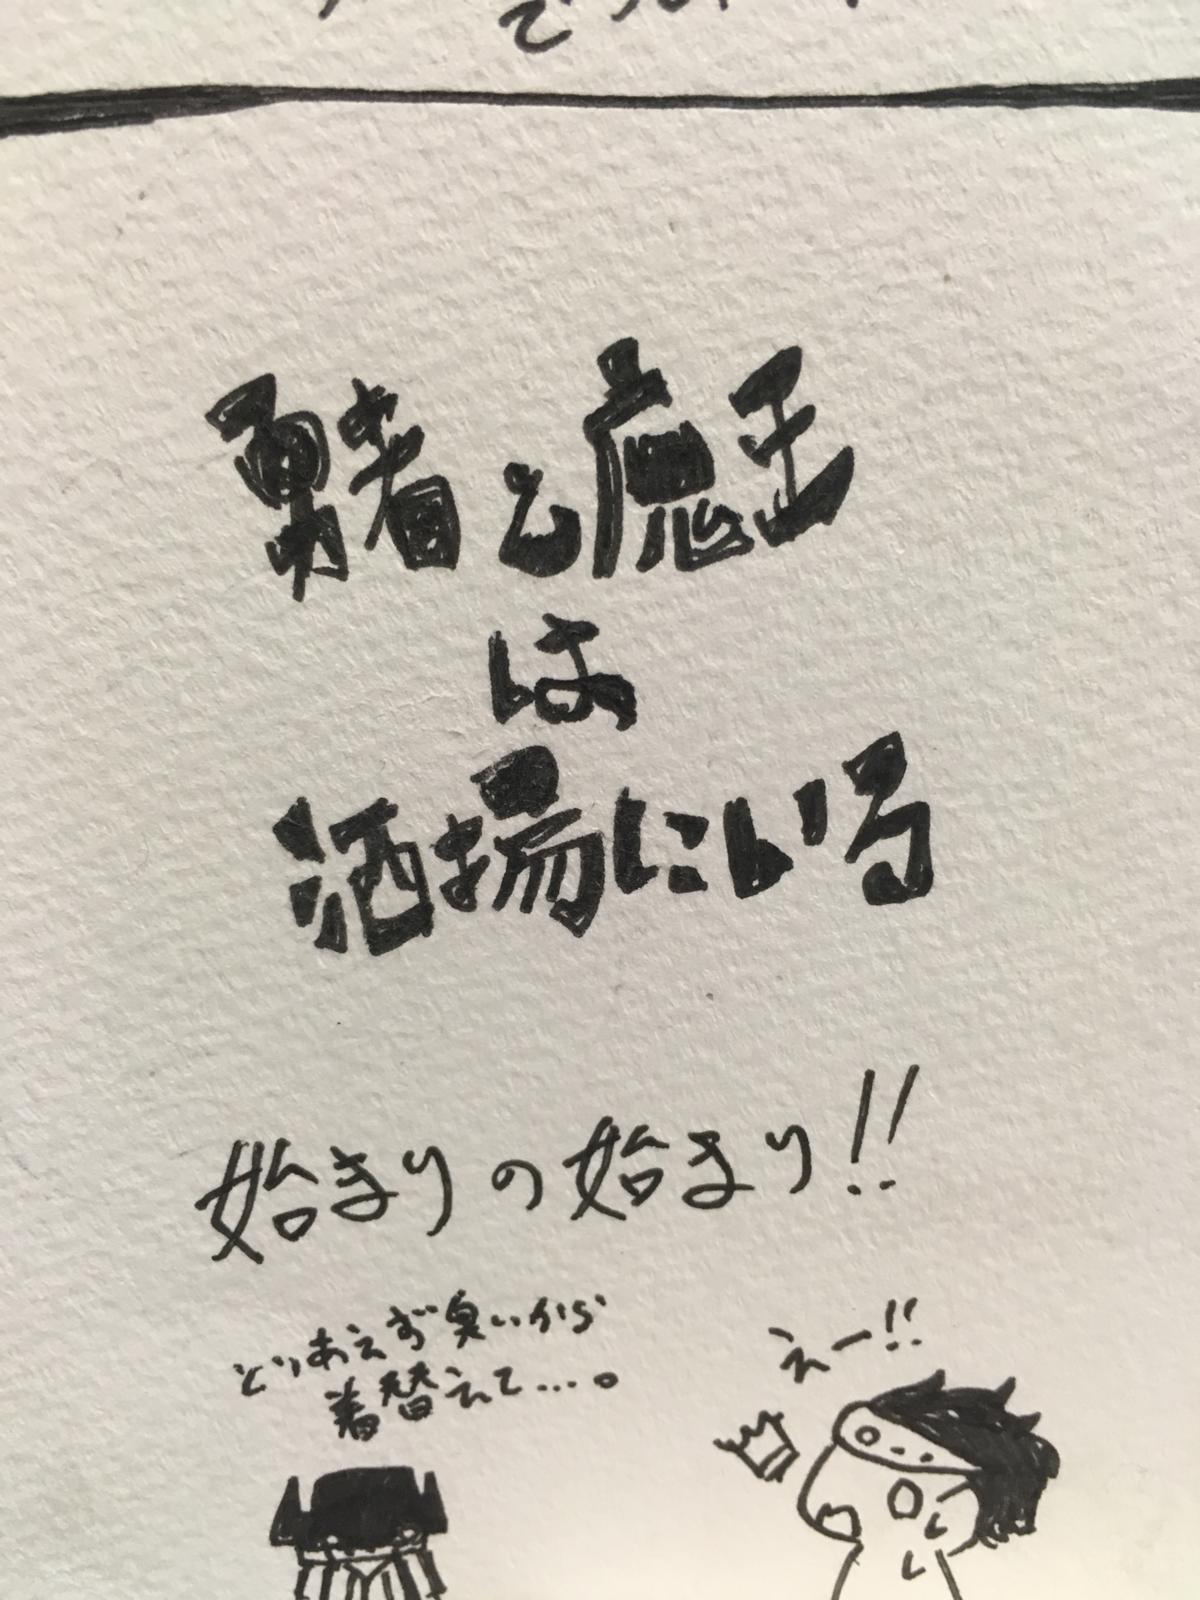 勇者と魔王
は
酒場にいる
始まりの始まり!!
とりあえず臭いから
着替えて…。
えー!!